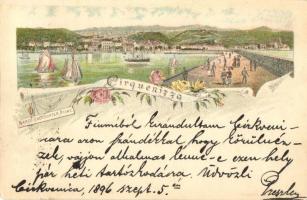 Cirquenizza
Fiumiból kirándultam Cirkveni-
czára azon szándékkal, hogy körülnéz-
zek, vajjon alkalmas lenne-e ezen hely
pár heti tartózkodásra. Üdvözli
Cirkvenica, 1896 szept. 5.